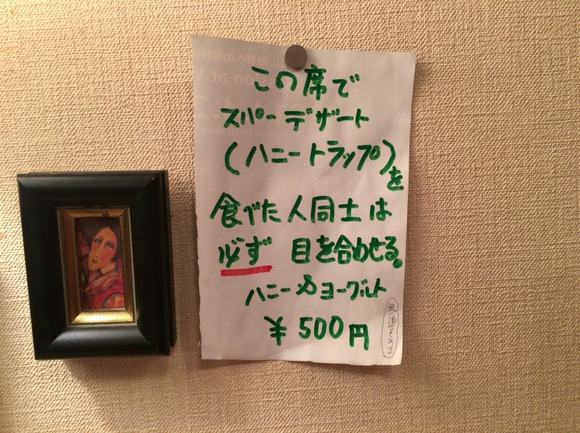 この席で
スパーデザート
(ハニートラップ)を
食べた人同士は
必ず 目を合わせる。
ハニー&ヨーグルト
¥500円